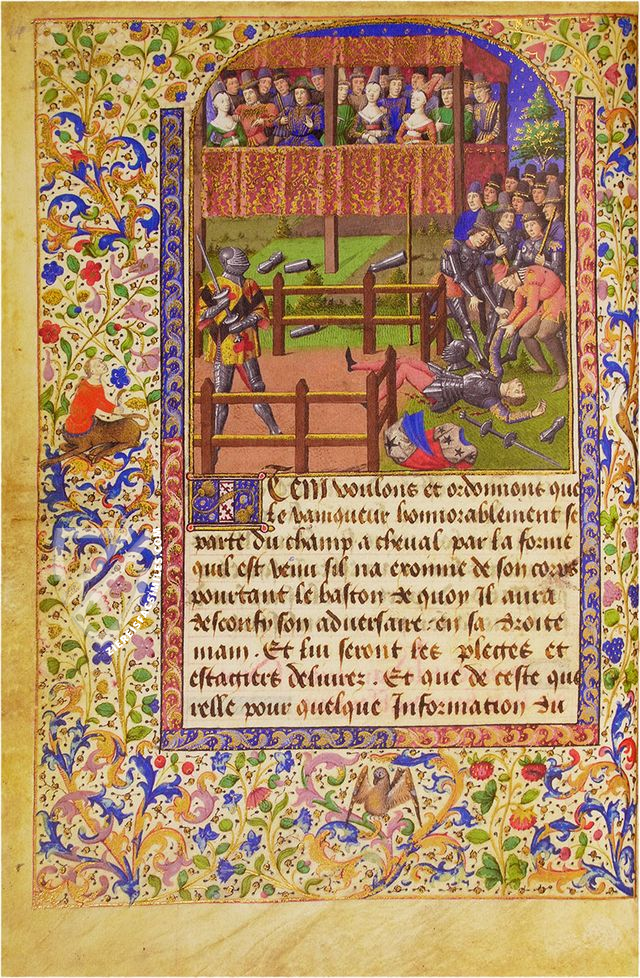 Item voulons et ordonnons que
le vainqueur honnorablement se
parte du champ a cheval par la forme
quil est venu sil na exonnie de son corps
pourtant le baston de quoy Il aura
desconfy son adversaire en sa droite
main . Et lui seront les pleges et
estagiers delivrez . Et que de ceste que
relle pour quelque Information du